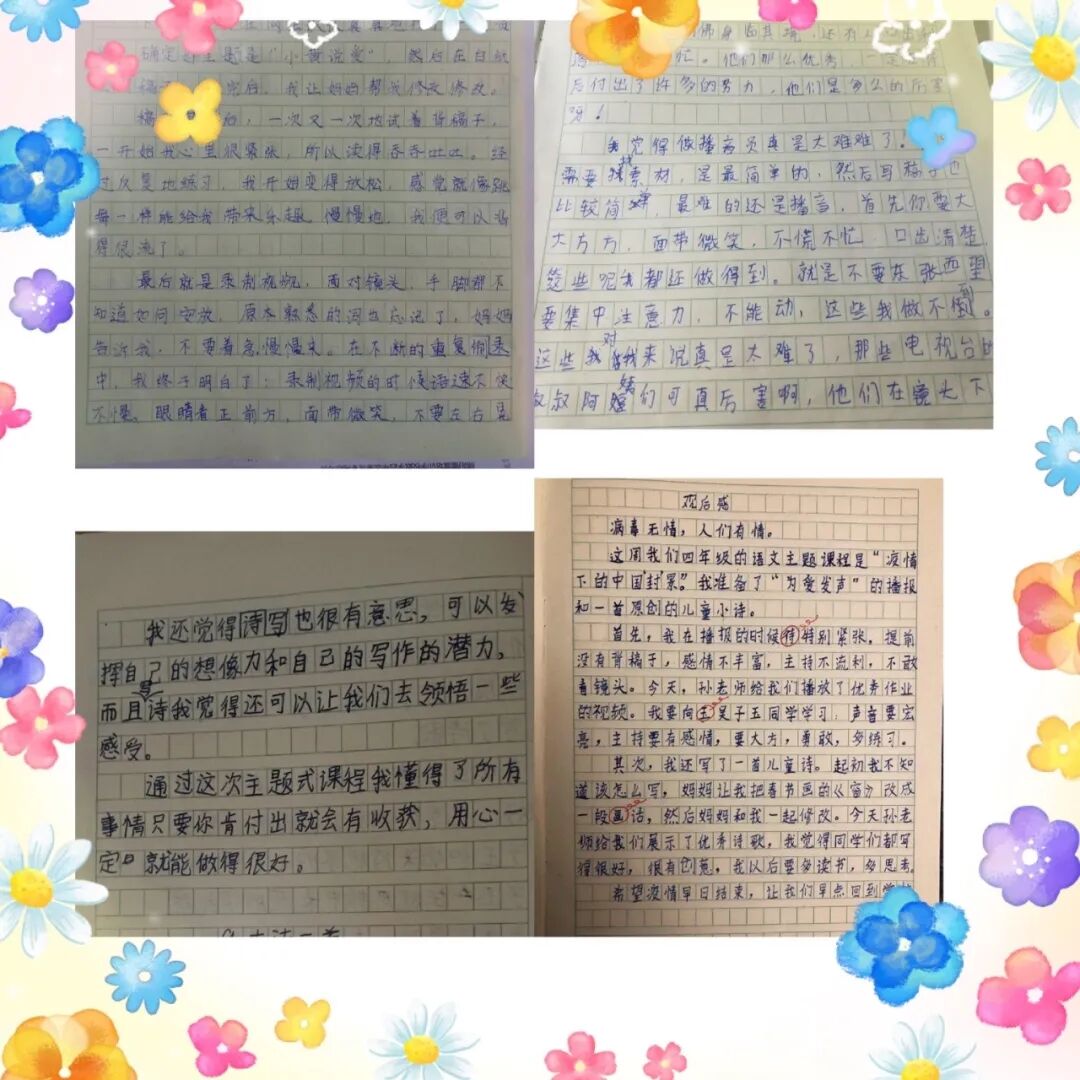 确定的主题是“小黄说爱”，然后在白纸
完后，我让妈妈帮我修改修改。
后，一次又一次地试着背稿子，
一开始我心里很紧张，所以读得吞吞吐吐。经
过反复地练习，我开始变得放松，感觉就像跳
舞一样能给我带来乐趣。慢慢地，我便可以背
得很流了。
最后就是录制视频，面对镜头，手脚都不
知道如何安放，原本熟悉的词也忘记了，妈妈
告诉我，不要着急慢慢来。在不断的重复偷录
中，我终于明白了：录制视频的时候语速不快
不慢。眼睛看正前方，面带微笑，不要左右晃
忙。他们那么优秀，一定
后付出了许多的努力，他们是多么的厉害
呀！
我觉得做播音员真是太难难了。
需要找素材，是最简单的，然后写稿子也
比较简单，最难的还是播音，首先你要大
大方方，面带微笑，不慌不忙，口齿清楚，
这些呢我都还做得到。就是不要东张西望
要集中注意力，不能动，这些我做不到。
这些我对我来说真是太难了，那些电视台的
叔叔阿姨们可真厉害啊，他们在镜头下
我还觉得诗写也很有意思，可以发
挥自己的想像力和自己的写作的潜力，
而且写诗我觉得还可以让我们去领悟一些
感受。
通过这次主题式课程我懂得了所有
事情只要你肯付出就会有收获，用心一
定就能做得很好。
观后感
病毒无情，人们有情。
这周我们四年级的语文主题课程是“疫情
下的中国‘封’景”。我准备了“为爱发声”的播报
和一首原创的儿童小诗。
首先，我在播报的时候特特别紧张，提前
没有背稿子，感情不丰富，主持不流利，不敢
看镜头。今天，孙老师给我们播放了优秀作业
的视频。我要向王吴子玉同学学习，声音要宏
亮，主持要有感情，要大方，勇敢，多练习。
其次，我还写了一首儿童诗。起初我不知
道该怎么写，妈妈让我把看书画的《窗》改成
一段画话，然后妈妈和我一起修改。今天孙老
师给我们展示了优秀诗歌，我觉得同学们都写
得很好，很有创意，我以后要多读书，多思考。
希望疫情早日结束，让我们早点回到学校